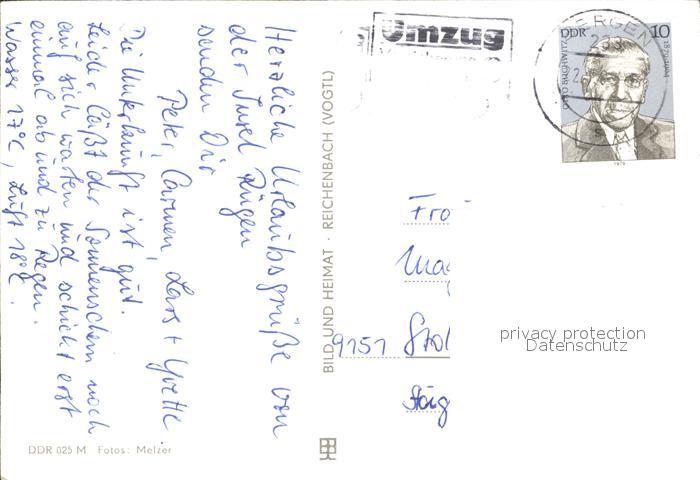 Herzliche Urlaubsgrüße von
der Insel Rügen
senden Dir
Peter, Carmen, Lars + Yvette.
Die Unterkunft ist gut.
Leider läßt der Sonnenschein noch
auf sich warten und schickt erst
einmal ab und zu Regen.
Wasser 17°C, Luft 18°C.
DDR 025 M Fotos: Melzer
BILD UND HEIMAT · REICHENBACH (VOGTL)
Umzug
BERGEN
233
DDR
10
OTTO BUCHWITZ
1879-1964
1979
Fra
Mag
9151 Stol
privacy protection
Datenschutz